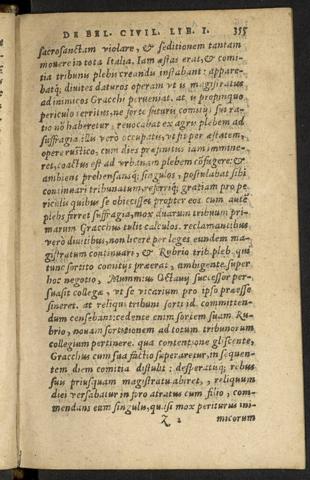 DE BEL. CIVIL. LIB. I. 355
sacrosanctam violare, & seditionem tantam
mouere in tota Italia. Iam æstas erat, & comi-
tia tribunis plebis creandis instabant: appare-
batq; diuites daturos operam vt is magistratus
ad inimicos Gracchi perueniat. at is propinquo
periculo territus, ne forte futuri comitijs sui ra-
tio nō haberetur, reuocabat ex agris plebem ad
suffragia: illis verò occupatis, vt fit per æstatem,
opere rustico, cum dies præfinitus iam immine-
ret, coactus est ad vrbanam plebem cōfugere: &
ambiens prehensansq; singulos, postulabat sibi
continuari tribunatum, referriq; gratiam pro pe-
riculis quibus se obiecisset propter eos cum autē
plebs ferret suffragia, mox duarum tribuum pri-
marum Gracchus tulit calculos. reclamantibus
verò diuitibus, non licere per leges eundem ma-
gistratum continuari, & Rubrio trib. pleb. qui
tunc sortito comitijs præerat, ambigente super
hoc negotio, Mummius Octauij successor per-
suasit collegæ, vt se vicarium pro ipso præesse
sineret. at reliqui tribuni sorti id committen-
dum censebant: cedente enim sortem suam Ru-
brio, nouam sortitionem ad totum tribunorum
collegium pertinere. qua contentione gliscente,
Gracchus cum sua factio superaretur, in sequen-
tem diem comitia distulit: desperatisq; rebus
suis priusquam magistratu abiret, , reliquum
diei versabatur in foro atratus cum filio, com-
mendans eum singulis, quasi mox periturus ini-
Z 2 micorum